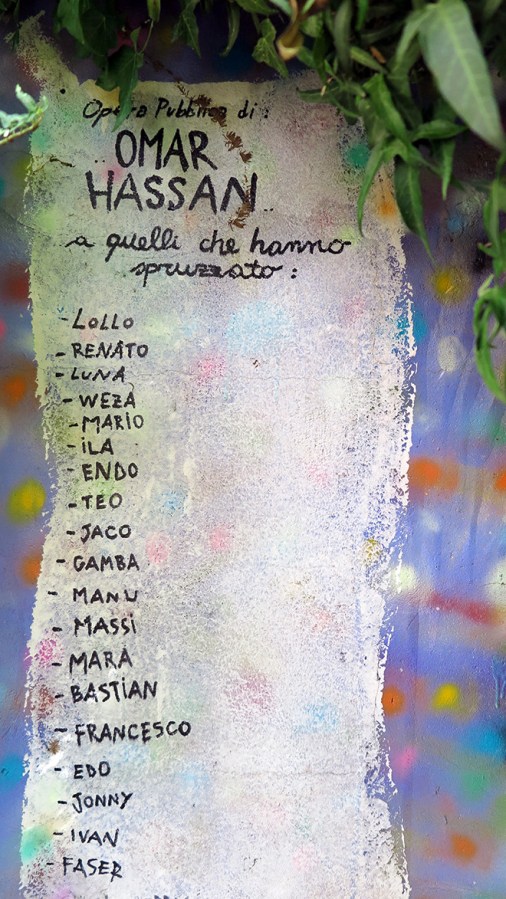 Opera Pubblica di:
OMAR
HASSAN
a quelli che hanno
spruzzato:
-LOLLO
-RENATO
-LUNA
-WEZA
-MARIO
-ILA
-ENDO
-TEO
-JACO
-GAMBA
-MANU
-MASSI
-MARA
-BASTIAN
-FRANCESCO
-EDO
-JONNY
-IVAN
-FASER